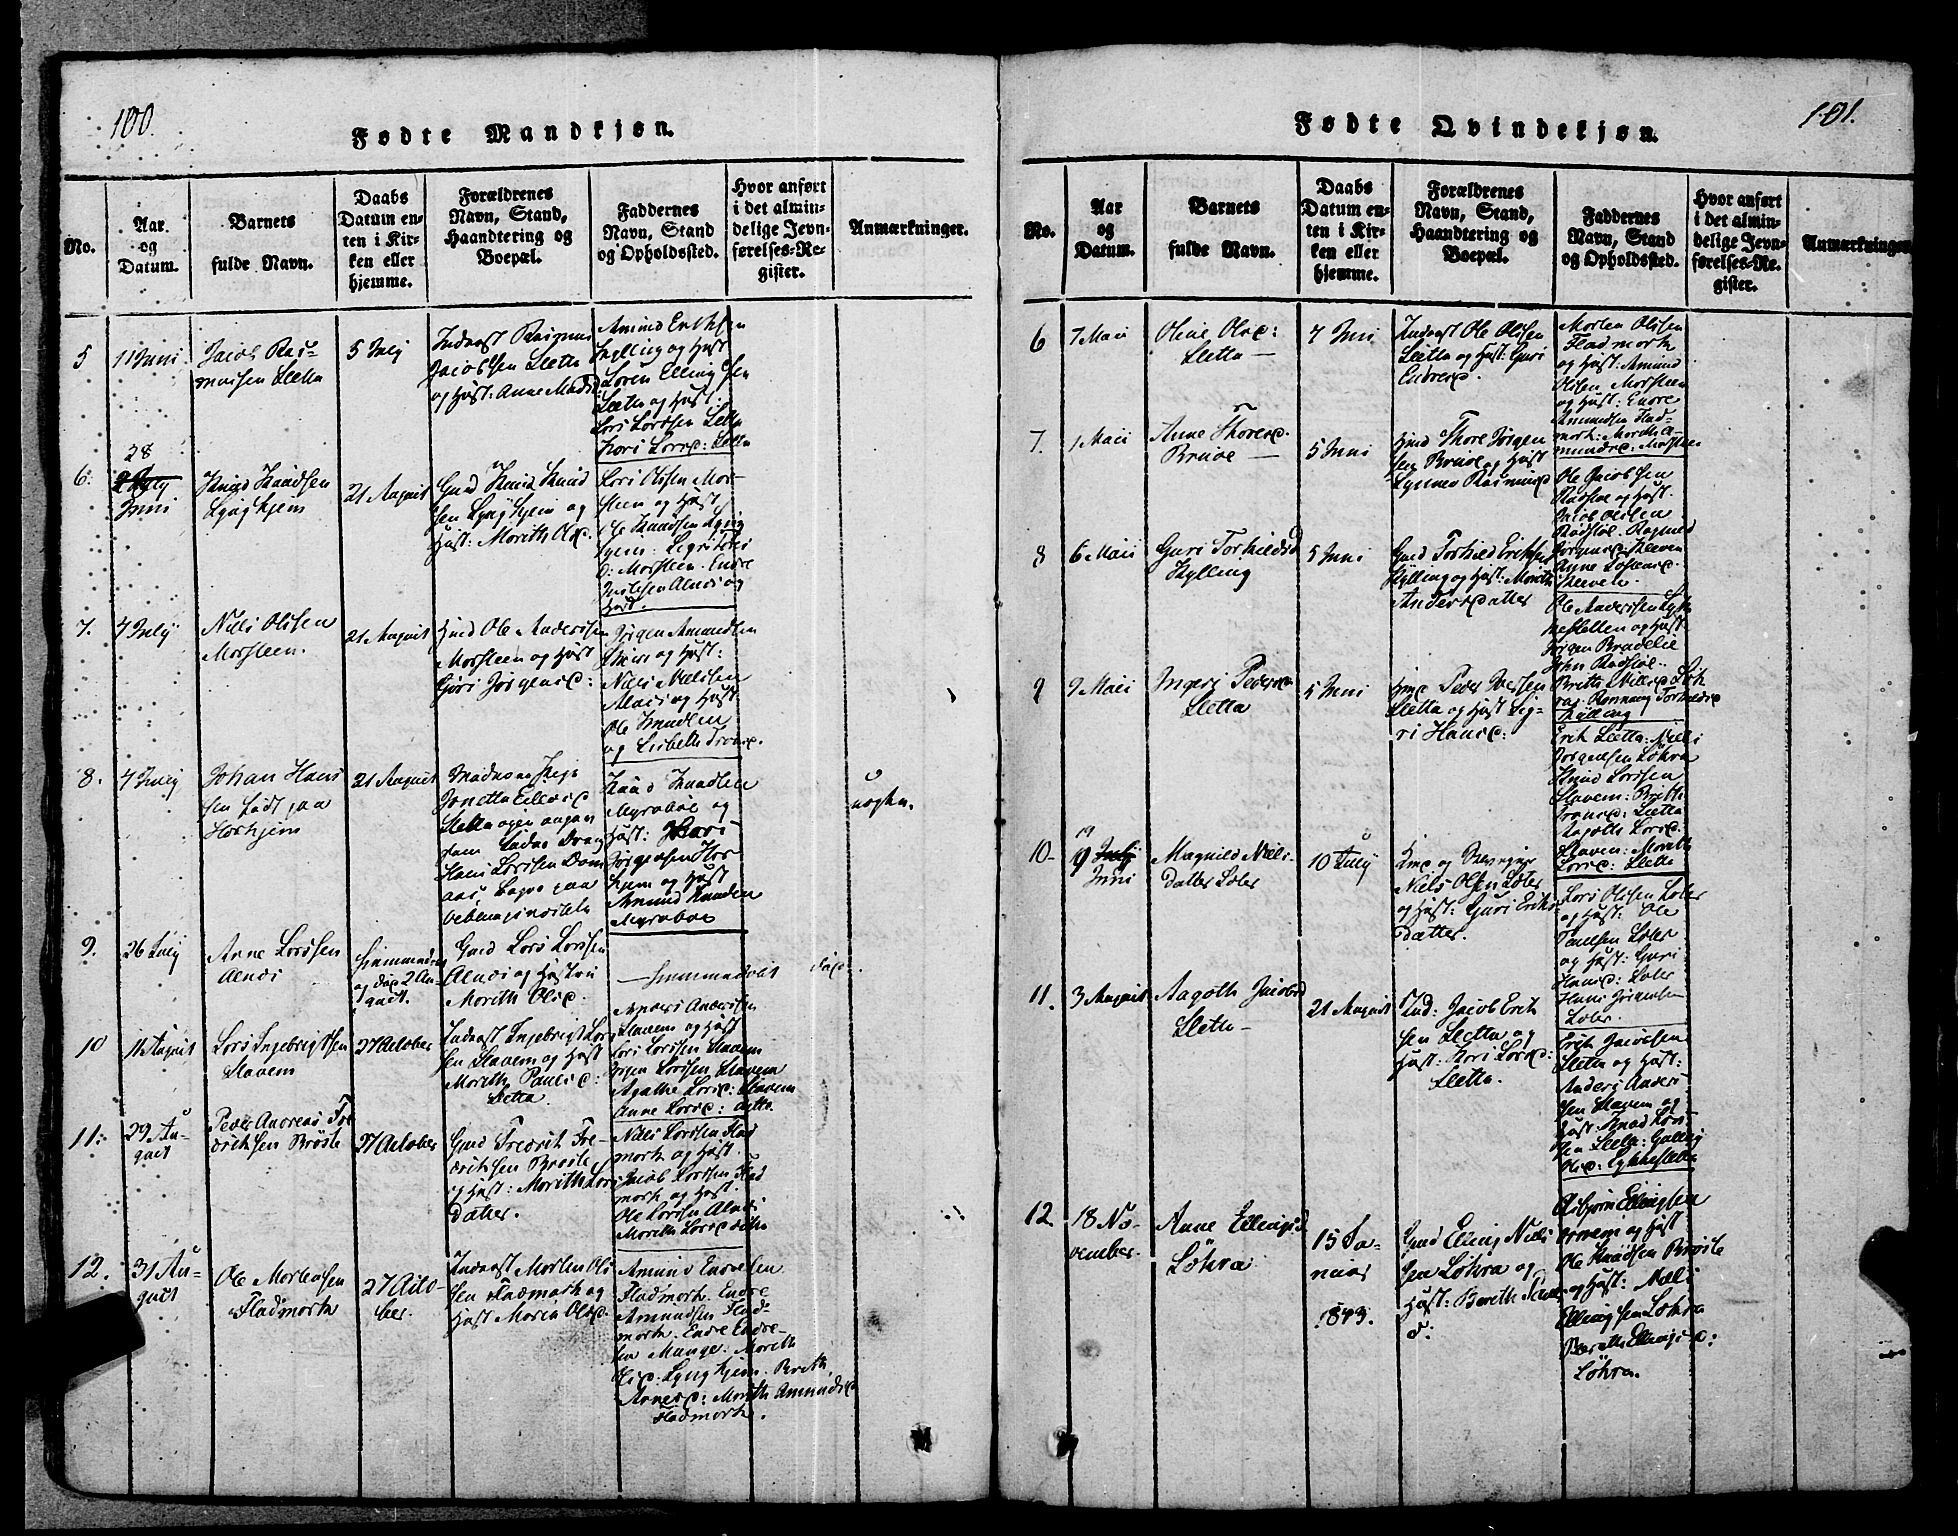 100.
Fødte Mandkjøn.
No.
Aar og Datum.
Barnets fulde Navn.
Daabs Datum enten i Kirken eller hjemme.
Forældrenes Navn, Stand, Haandtering og Boepæl.
Faddernes Navn, Stand og Opholdssted.
Hvor anført i det almindelige Jevnførelses-Register.
Anmærkninger.
5
11 Juni
Jacob Ras-
musen Sletta
5 July
Inderst Rasmus
Jacobsen Sletta
og Hust: Anne Madsd
Amund Eriksen
Kylling og Hust
Loren Ellingsen
Sletta og Hust:
Lars Larssen Sletta
Kari Larsd: Sletta
6.
28
Juni
Knud Knudsen
Lyngkjem
21 August
Gmd Knud Knud
sen Lyngkjem og
Hust: Marith Olsd.
Lars Olssen Mor-
steen og Hust
Ole Knudsen Lyng
kjem:
Morsteen. Endre
og
Hust.
7.
4 July
Niels Olssen
Morsteen.
21 August
Hmd Ole Anderssen
Morsteen og Hust
Guri Jørgensd:
Jørgen Amundsen
og Hust:
Niels Nielssen
og Hust
Ole Knudsen
og Lisbeth
8.
4 July
Johan Hans
sen født paa
Horkjem
21 August
Sletta
Hans Larssen
Knud Knudsen
Myrabøe og
Hust: Kari
Jørgensen Hor
kjem og Hust
Amund Knudsen
Myrabøe
uægte.
9.
26 July
Arne Larssen
Alnæs
Hjemmedøbt
2 Au-
gust.
Gmd Lars Larssen
Alnæs og Hustru
Marith Olsd.
Hjemmedøbt
10
11 August
Lars Ingebrigtsen
Stavem
27 October
Inderst Ingebrigt Lars
sen Stavem og Hust
Marith Paulsd:
Sletta
Anders Anderssen
Stavem og Hust
Lars Larssen Stavem
Jørgen Larssen Stavem
Agathe Larsd: Stavem
Anne Larsd: Sletta
11.
29 Au-
gust
Peder Andreas Fre
deriksen Brøste
27 October
Gmd Frederik Fre-
deriksen Brøste
og Hust: Marith Lars
datter.
Niels Larssen Flad
mark og Hust.
Jacob Larssen Flad
mark og Hust.
Ole Larssen Alnæs
Marith Larsd
12.
31 Au-
gust
Ole Mortensen
Fladmark
27 Octo-
ber.
Inderst Morten Ols
sen Fladmark og
Hust Marit Olsd.
Amund Endresen
Fladmark. Endre
Amundsen Flad-
mark. Endre Endre-
sen Monge. Marith
Olsd. Lyngkjem. Berith
Arnesd: Marith Amundsd
Fladmark.
101.
Fødte Qvindekjøn.
No.
Aar og Datum.
Barnets fulde Navn.
Daabs Datum enten i Kirken eller hjemme.
Forældrenes Navn, Stand, Haandtering og Boepæl.
Faddernes Navn, Stand og Opholdssted.
Hvor anført i det almindelige Jevnførelses-Register.
Anmærkninger
6
7 Maii
Oline Olsd:
Sletta
7 Juni
Inderst Ole Olssen
Sletta og Hust: Guri
Endresd.
Morten Olssen
Fladmark
og Hust: Amund
Olssen Morsteen
og Hust: Endre
Amundsen Flad-
mark: Marith A-
mundsd: Morsteen
7.
1 Maii
Anne Thoresd.
Brude
5 Juni
Hmd Thore Jørgen
sen Brude og Hust
Synnev Rasmusd
Ole Jacobsen
Rødstøl og Hust.
Jacob Olssen
Rødstøl. Rasmus
Jørgensd: Kleven
Anne
Kleven.
8
6 Maii
Guri Torkildsd
Kylling
5 Juni
Gmd Torkild Eriksen
Kylling og Hust: Marith
Andersdatter
Ole Anderssen Lykk
jesletten og Hust.
Jørgen Brudelie
John Rødstøl.
Brith Nielsd Løh
ra: Rønnaug Torkildsd
Kylling
9
9 Maii
Ingeri Pedersd
Sletta
5 Juni
Hmd Peder Iversen
Sletta og Hust Sig-
ri Hansd:
Erik Sletta: Niels
Jørgensen Løhra
Knud Larssen
Stavem: Brith
Sletta
Aagoth Larsd.
Staven: Marith
Larsd: Sletta
10-
19
Juni
Magnild Niels-
datter Soler
10 July
Hmd og
Niels Olsen Soler
og Hust: Guri Eriks
datter.
Lars Olssen Soler
og Hust: Ole
Paulsen Soler
og Hust: Guri
Hansd: Soler
Hans Jørgensen
Soler.
11.
3 August
Aagoth Jacobsd
Sletta
21 August
Ind: Jacob Erik
sen Sletta og
Hust: Kari Larsd:
Sletta.
Erik Jacobsen
Sletta og Hust:
Anders Anders-
sen Stavem og
Hust. Knud Lars-
sen Sletta: Gulling
Olsd: Lykkeslette
12.
18 No-
vember.
Anne Ellingsd.
Løhra
15 Ja-
nuar
1843.
Gmd Elling Niels
sen Løhra og
Hust: Bereth Peders
d:
Asbjørn Ellingsen
og Hust
Ole Knudsen Brøste
og Hust: Niels
Ellingsen Løhra
Bereth Ellingsd:
Løhra.